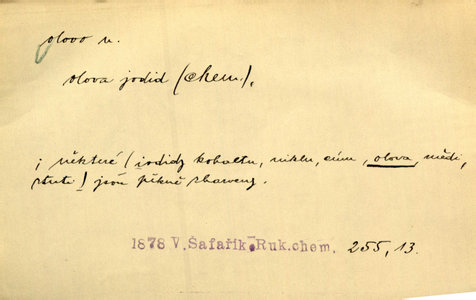 olovo n.
olova jodid (chem.),
; některé (jodidy kobaltu, niklu, cínu, olova, mědi,
rtuti) jsou pěkně zbarveny.
1878 V. Šafařík Ruk.chem. 255, 13.